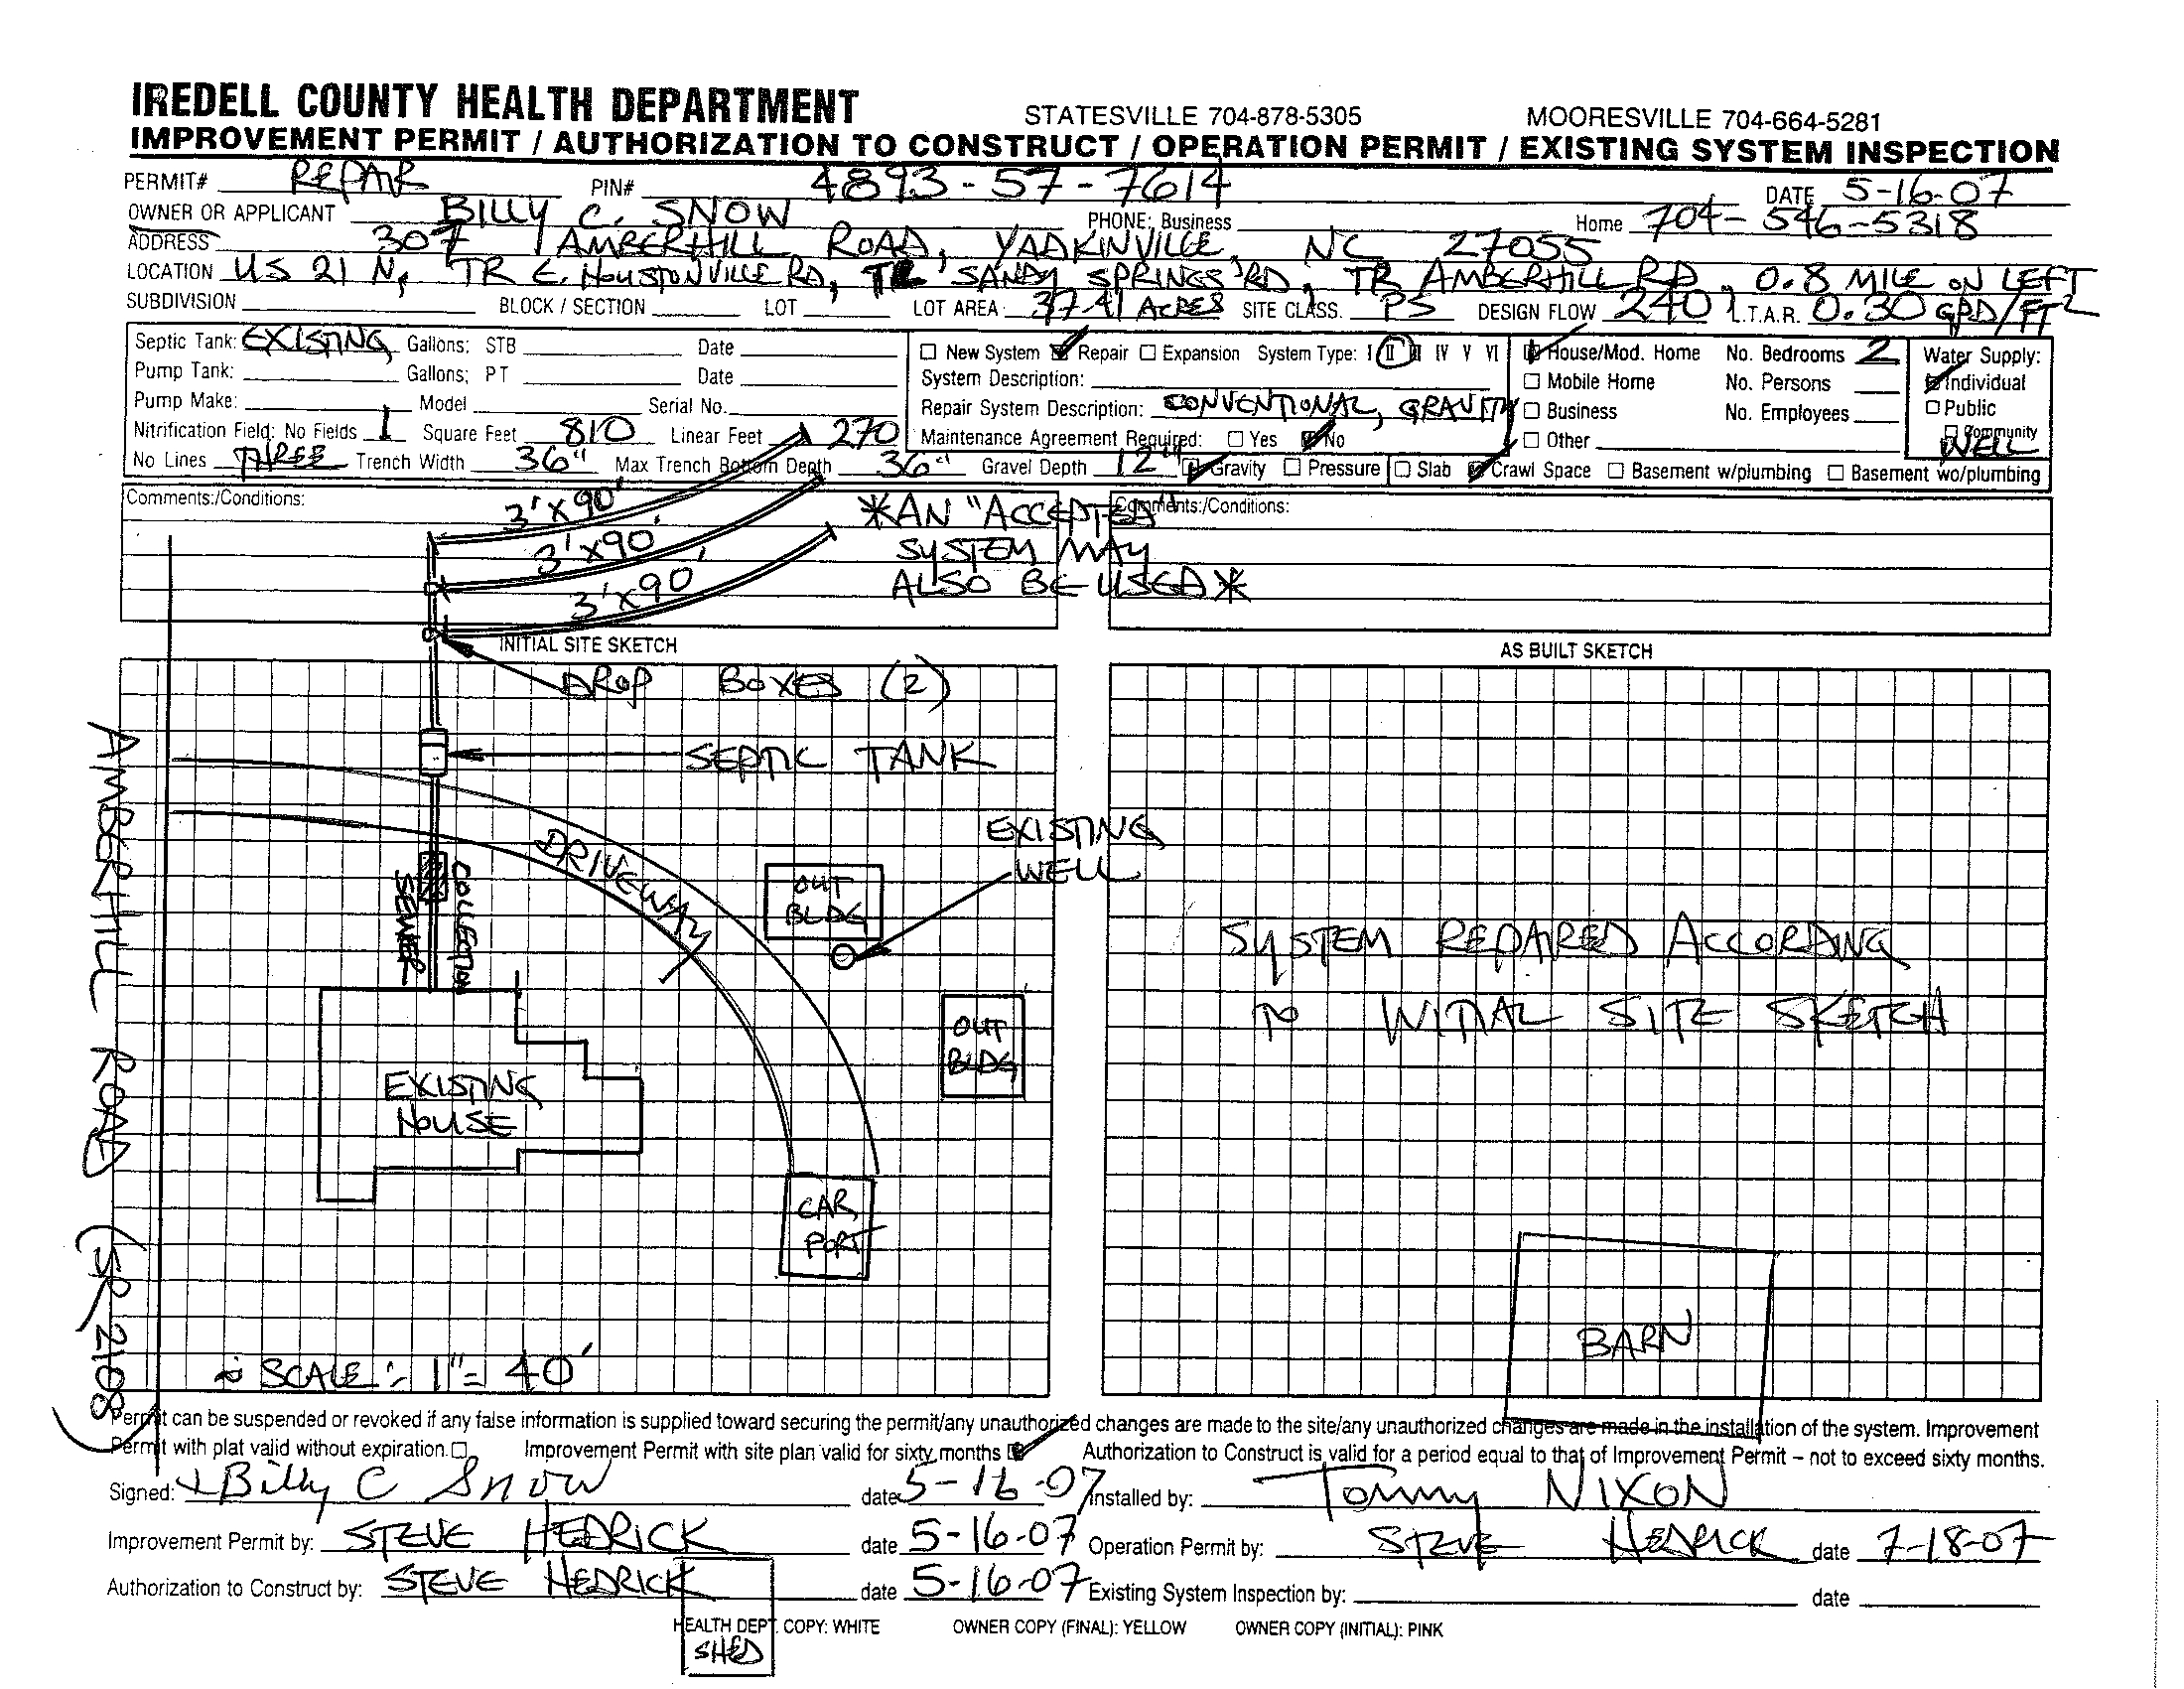 IREDELL COUNTY HEALTH DEPARTMENT STATESVILLE 704-878-5305 MOORESVILLE 704-664-5281
IMPROVEMENT PERMIT / AUTHORIZATION TO CONSTRUCT / OPERATION PERMIT / EXISTING SYSTEM INSPECTION
PERMIT# REPAIR PIN# 4893-57-7614 DATE 5-16-07
OWNER OR APPLICANT BILLY C. SNOW PHONE: Business Home 704-546-5318
ADDRESS 307 AMBERHILL ROAD, YADKINVILLE, NC 27055
LOCATION US 21 N, TR E. HOUSTONVILLE RD, TL SANDY SPRINGS RD, TR AMBERHILL RD, 0.8 MILE ON LEFT
SUBDIVISION BLOCK / SECTION LOT LOT AREA 37.41 ACRES SITE CLASS. PS DESIGN FLOW 240 L.T.A.R. 0.30 GPD/FT2
Septic Tank: EXISTING Gallons: STB Date
Pump Tank: Gallons; PT Date
Pump Make: Model Serial No.
Nitrification Field: No Fields 1 Square Feet 810 Linear Feet 270
No Lines THREE Trench Width 36" Max Trench Bottom Depth 36" Gravel Depth 12" Gravity Pressure Slab Crawl Space Basement w/plumbing Basement wo/plumbing
New System Repair Expansion System Type: I II III IV V VI
System Description:
Repair System Description: CONVENTIONAL, GRAVITY
Maintenance Agreement Required: Yes No
House/Mod. Home No. Bedrooms 2
Mobile Home No. Persons
Business No. Employees
Other
Water Supply:
Individual
Public
Community
WELL
Comments:/Conditions:
3'X90'
3'X90'
3'X90'
*AN "ACCEPTED"
SYSTEM MAY
ALSO BE USED*
Comments:/Conditions:
INITIAL SITE SKETCH
AS BUILT SKETCH
DROP BOXES (2)
SEPTIC TANK
EXISTING
WELL
DRIVEWAY
OUT
BLDG
COLLECTION
SEWER
OUT
BLDG
EXISTING
HOUSE
CAR
PORT
AMBERHILL ROAD (SR 2108)
~ SCALE: 1" = 40'
SYSTEM REPAIRED ACCORDING
TO INITIAL SITE SKETCH
BARN
Permit can be suspended or revoked if any false information is supplied toward securing the permit/any unauthorized changes are made to the site/any unauthorized changes are made in the installation of the system. Improvement
Permit with plat valid without expiration. Improvement Permit with site plan valid for sixty months Authorization to Construct is valid for a period equal to that of Improvement Permit – not to exceed sixty months.
Signed: x Billy C Snow date 5-16-07 Installed by: Tommy NIXON
Improvement Permit by: STEVE HEDRICK date 5-16-07 Operation Permit by: STEVE HEDRICK date 7-18-07
Authorization to Construct by: STEVE HEDRICK date 5-16-07 Existing System Inspection by: date
HEALTH DEPT. COPY: WHITE OWNER COPY (FINAL): YELLOW OWNER COPY (INITIAL): PINK
SHED